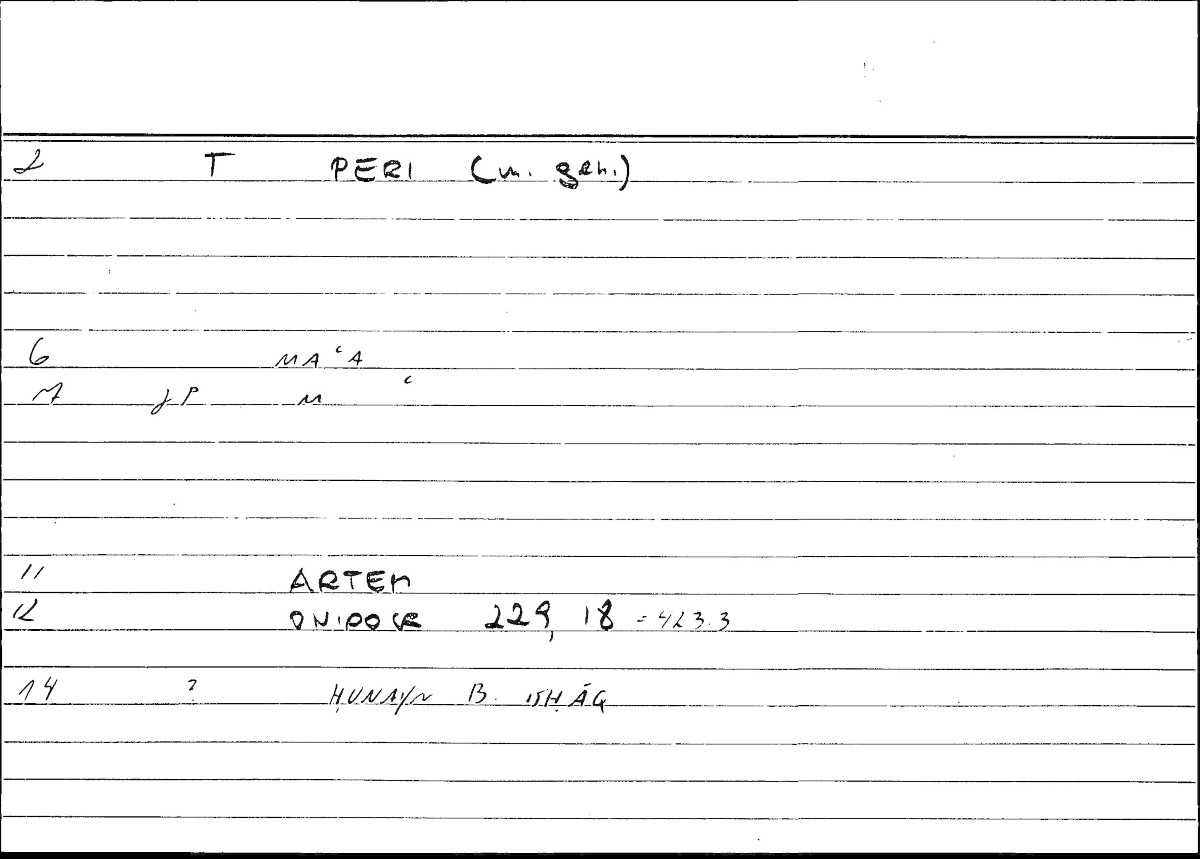 2 T PERI (m. gen.)
6 MAʿA
7 JP M ʿ
11 ARTEM
12 ONIROCR 229, 18 = 423.3
14 ? ḤUNAYN B. ISḤĀQ